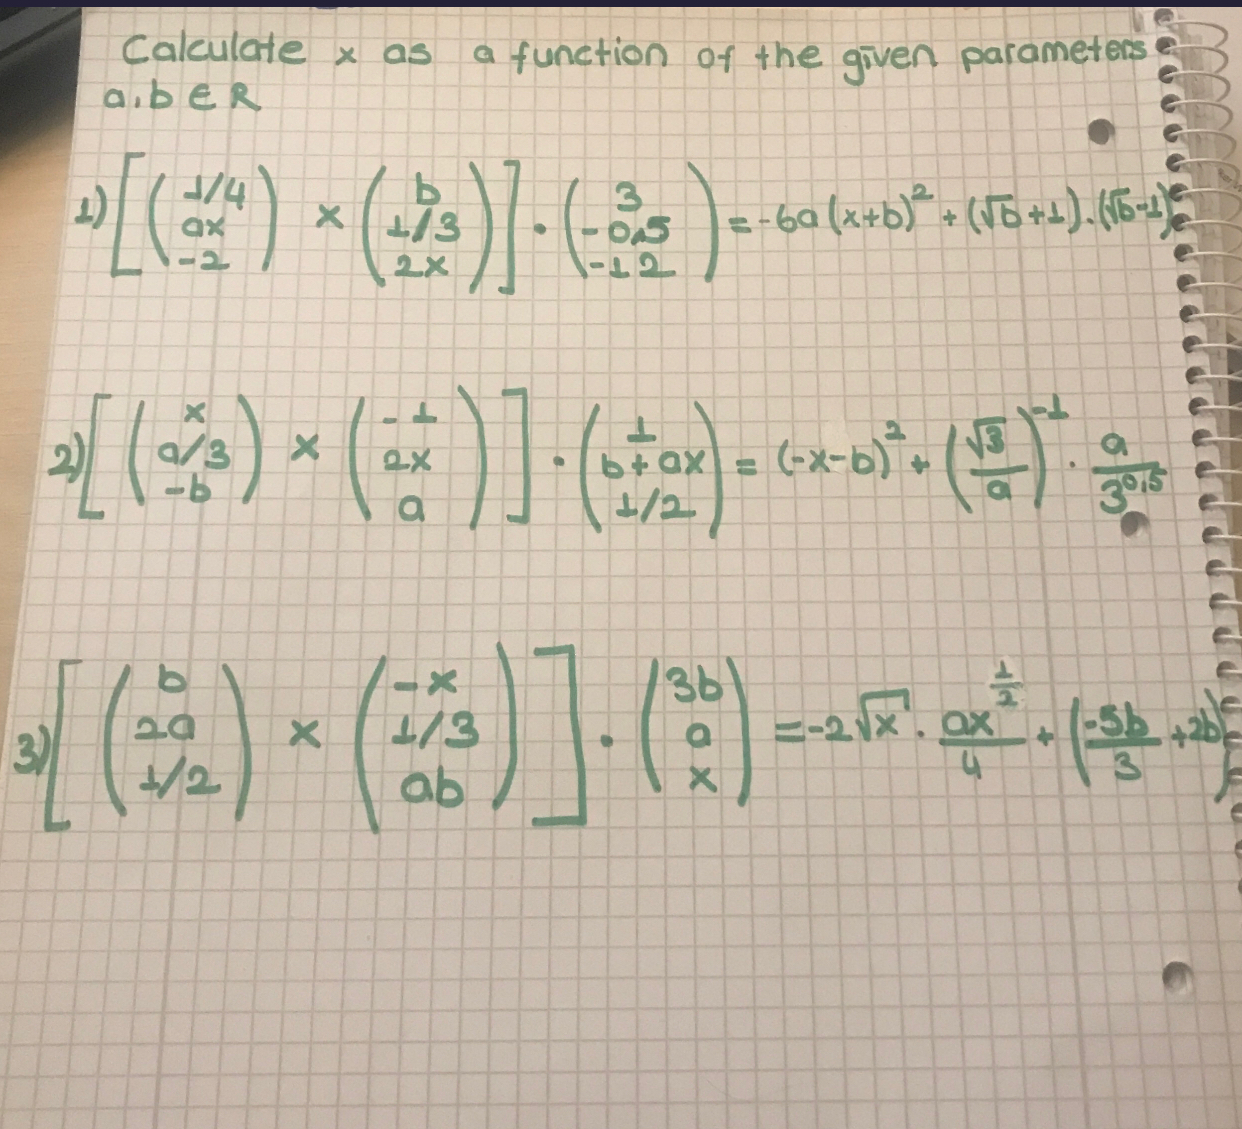 Calculate x as a function of the given parameters
a,b ∈ R
1) [(1/4 ax -2) × (b 1/3 2x)] · (3 -0,5 -12) = -6a(x+b)² + (√b+1).(√b-1)
2) [(x a/3 -b) × (-1 2x a)] · (1 b+ax 1/2) = (-x-b)² + (√3/a)⁻¹ · a/3^0,5
3) [(b 2a 1/2) × (-x 1/3 ab)] · (3b a x) = -2√x · ax^(1/2)/4 + (-5b/3 +2b)